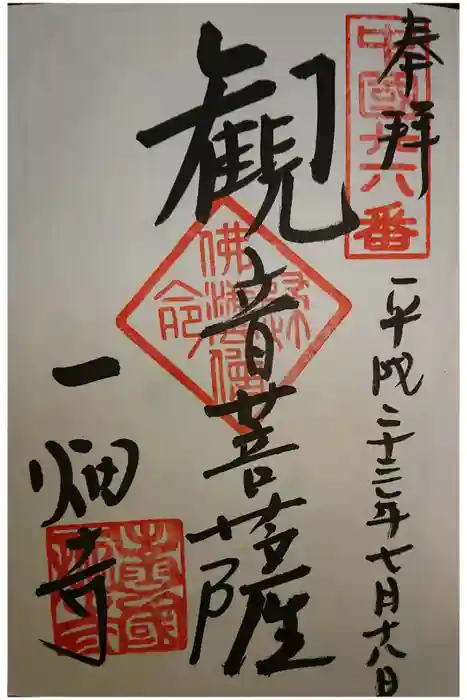 奉拝
中國廿六番
平成二十三年七月十八日
観音菩薩
一畑寺